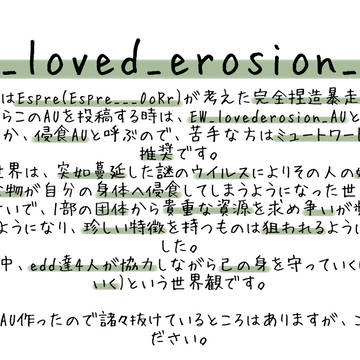 _loved_erosion_
はEspre(Espre___OoRr)が考えた完全捏造暴走
らこのAUを投稿する時は、EW_lovederosion_AUと
か、侵食AUと呼ぶので、苦手な方はミュートワー
推奨です。
世界は、突如蔓延した謎のウイルスによりその人の
な物が自分の身体へ侵食してしまうようになった世
せいで、1部の団体から貴重な資源を求め争いが
ようになり、珍しい特徴を持つものは狙われるよう
した。
中、edd達4人が協力しながら己の身を守っていく
いく)という世界観です。
AU作ったので諸々抜けているところはありますが、
ださい。